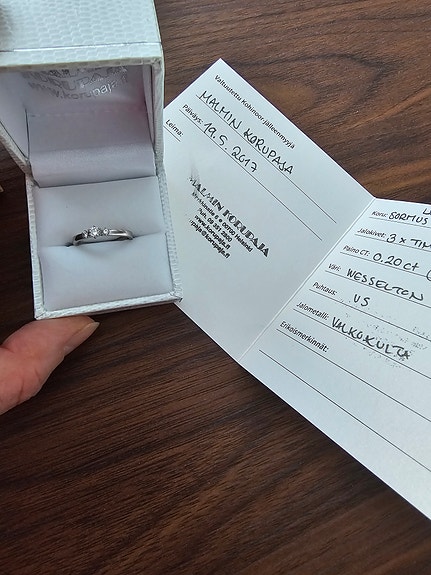 Valtuutettu Kohinoor Jälleenmyyjä
MALMIN KORUPAJA
Päiväys: 19.5.2017
Leima:
MALMIN KORUPAJA
00700 Helsinki
Puh. 09 351
www.korupaja.fi
Koru: SORMUS
Jalokivet: 3 x TIM
Paino ct: 0,20 ct (
Väri: WESSELTON
Puhtaus: VS
Jalometalli: VALKOKULTA
Erikoismerkinnät: